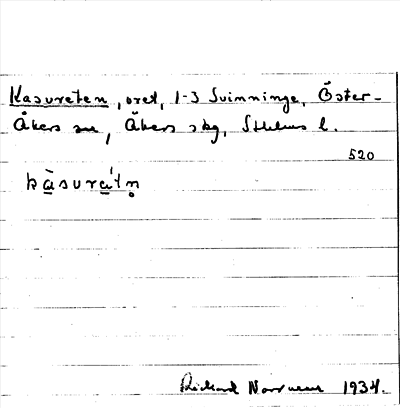 Kasvreten, vret, 1-3 Svinninge, Öster-
Åkers sn, Åkers skg, Sthlms l.
520
kàsvrátn̥
Rickard 1934.